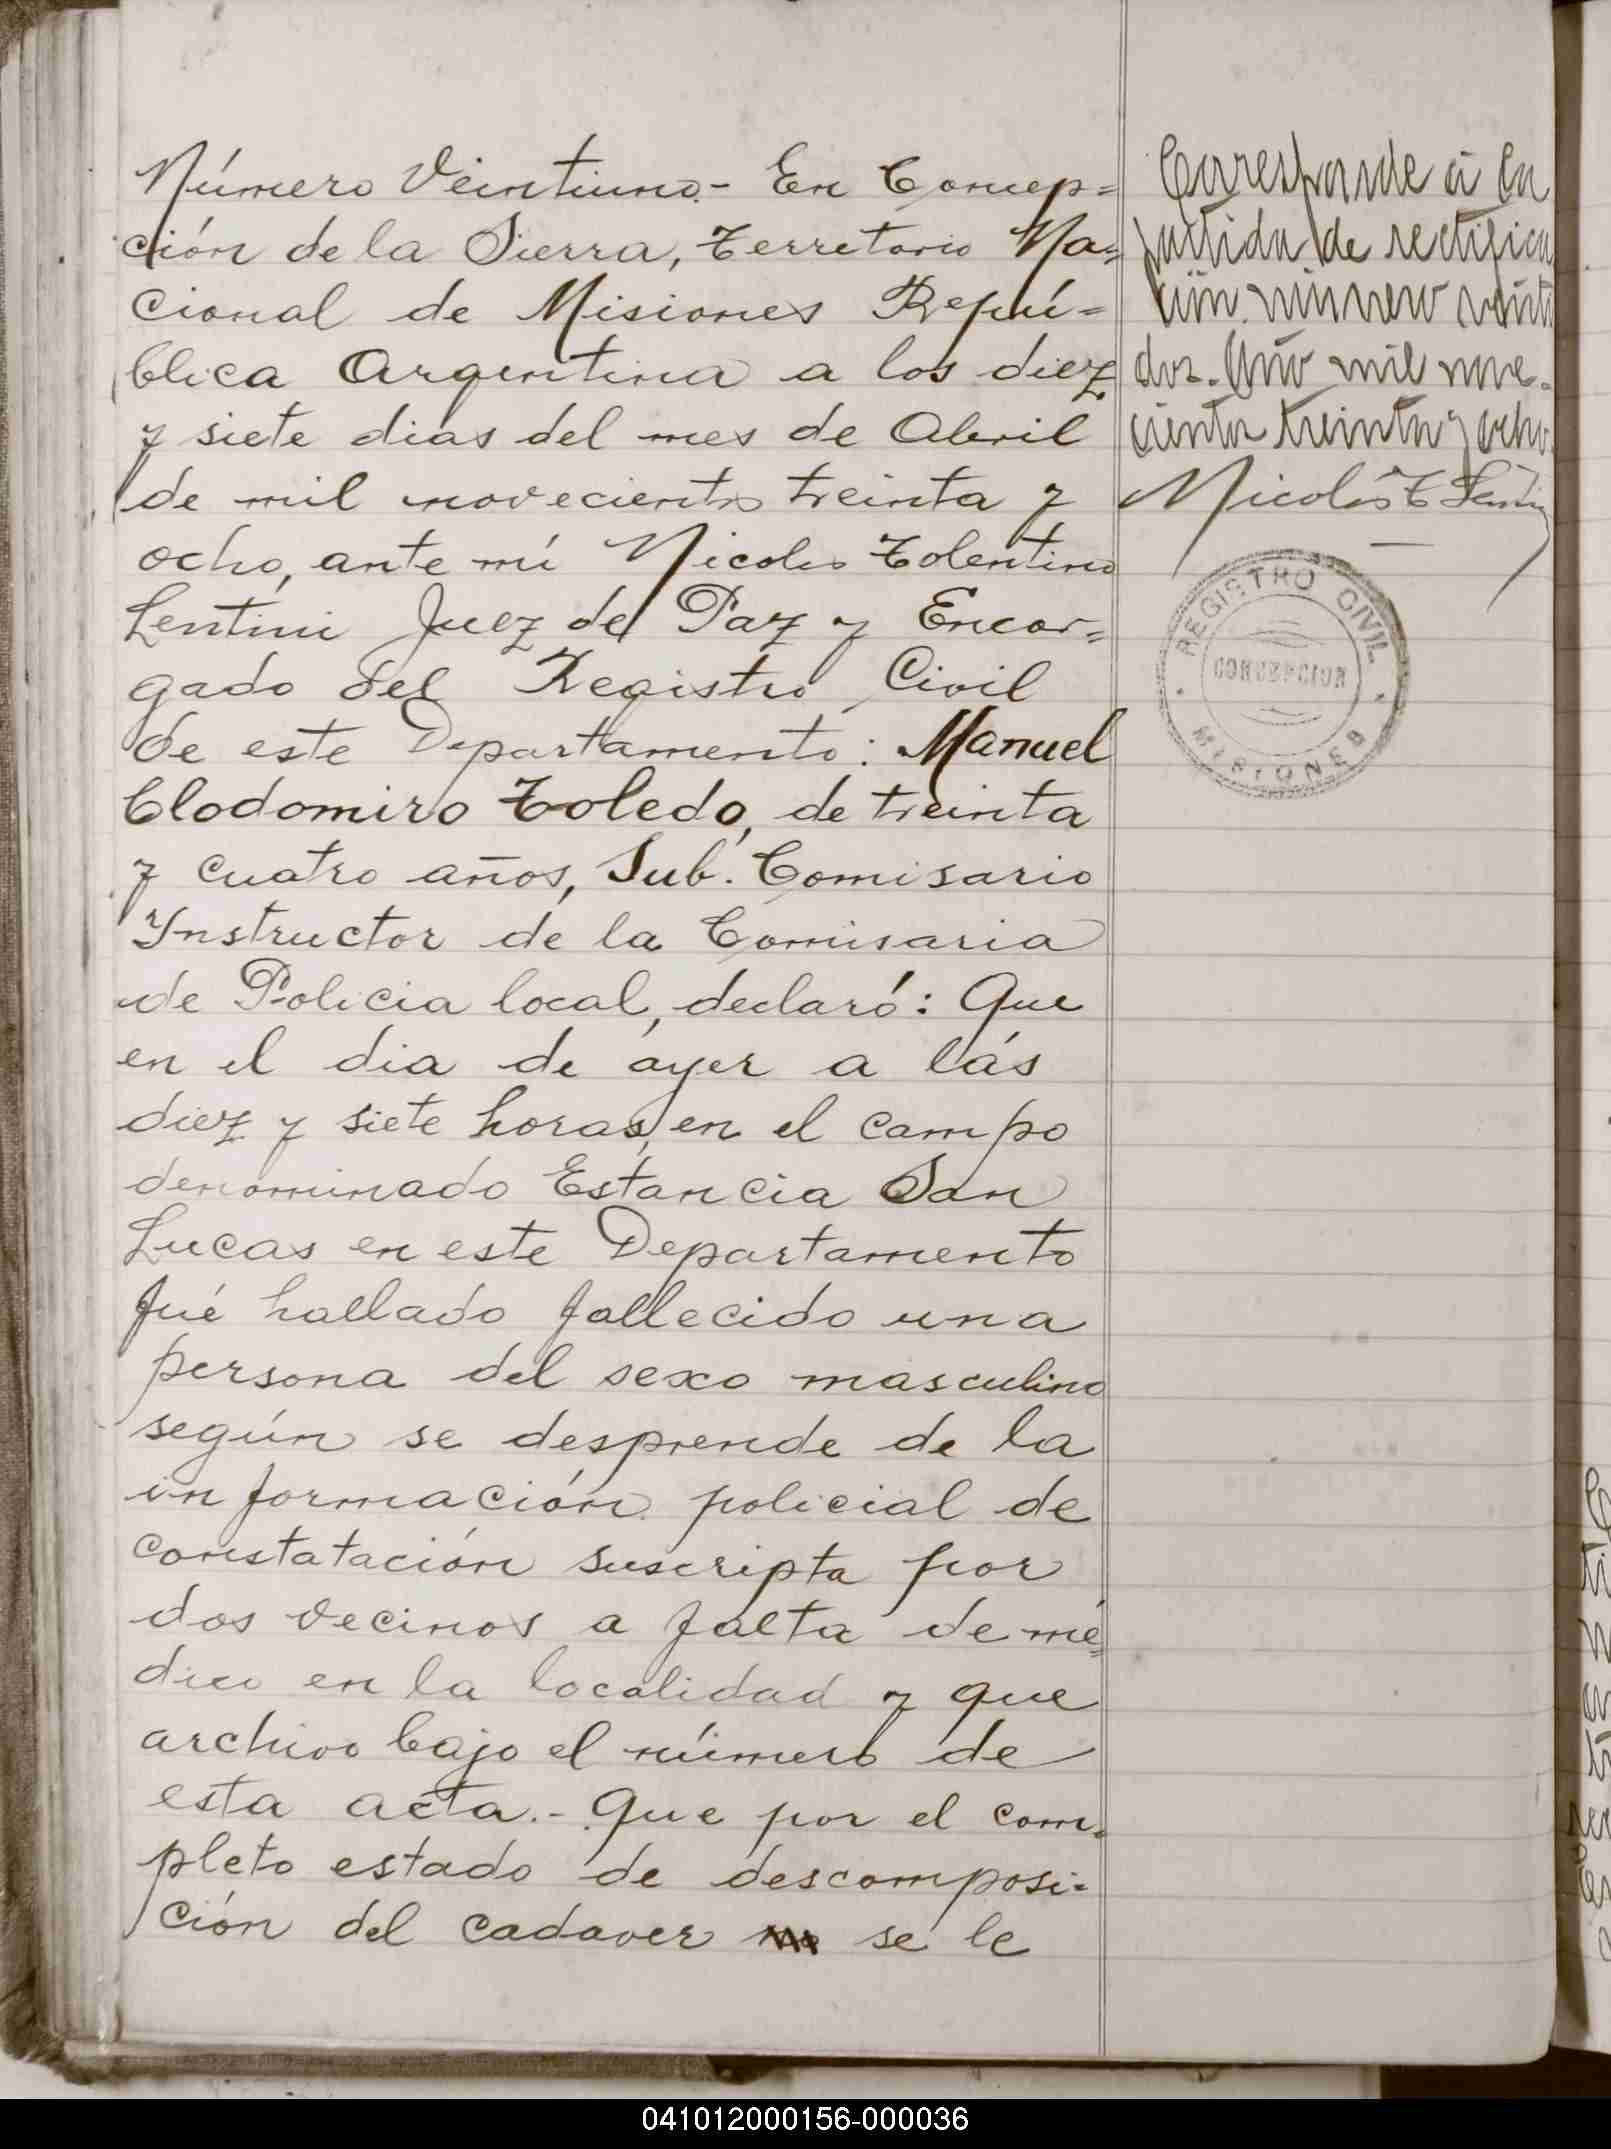 Número Veintiuno.- En Concep=
ción de la Sierra, Territorio Na=
cional de Misiones Repú=
blica Argentina a los diez
y siete dias del mes de Abril
de mil novecientos treinta y
ocho, ante mí Nicolas Tolentino
Lentini Juez de Paz y Encar=
gado del Registro Civil
de este Departamento: Manuel
Clodomiro Toledo, de treinta
y cuatro años, Sub. Comisario
Ynstructor de la Comisaria
de Policia local, declaró: Que
en el dia de áyer a lás
diez y siete horas, en el campo
denominado Estancia San
Lucas en este Departamento
fué hallado fallecido una
persona del sexo masculino
según se desprende de la
información policial de
constatación suscripta por
dos vecinos a falta de mé=
dico en la localidad y que
archivo bajo el número de
esta acta.- Que por el com=
pleto estado de descomposi=
ción del cadaver se le
Corresponde a la
partida de rectifica
ción número veinti
dos. Año mil nove-
cientos treinta y ocho.
Nicolás T Lentini
REGISTRO CIVIL
CONCEPCION
MISIONES
041012000156-000036